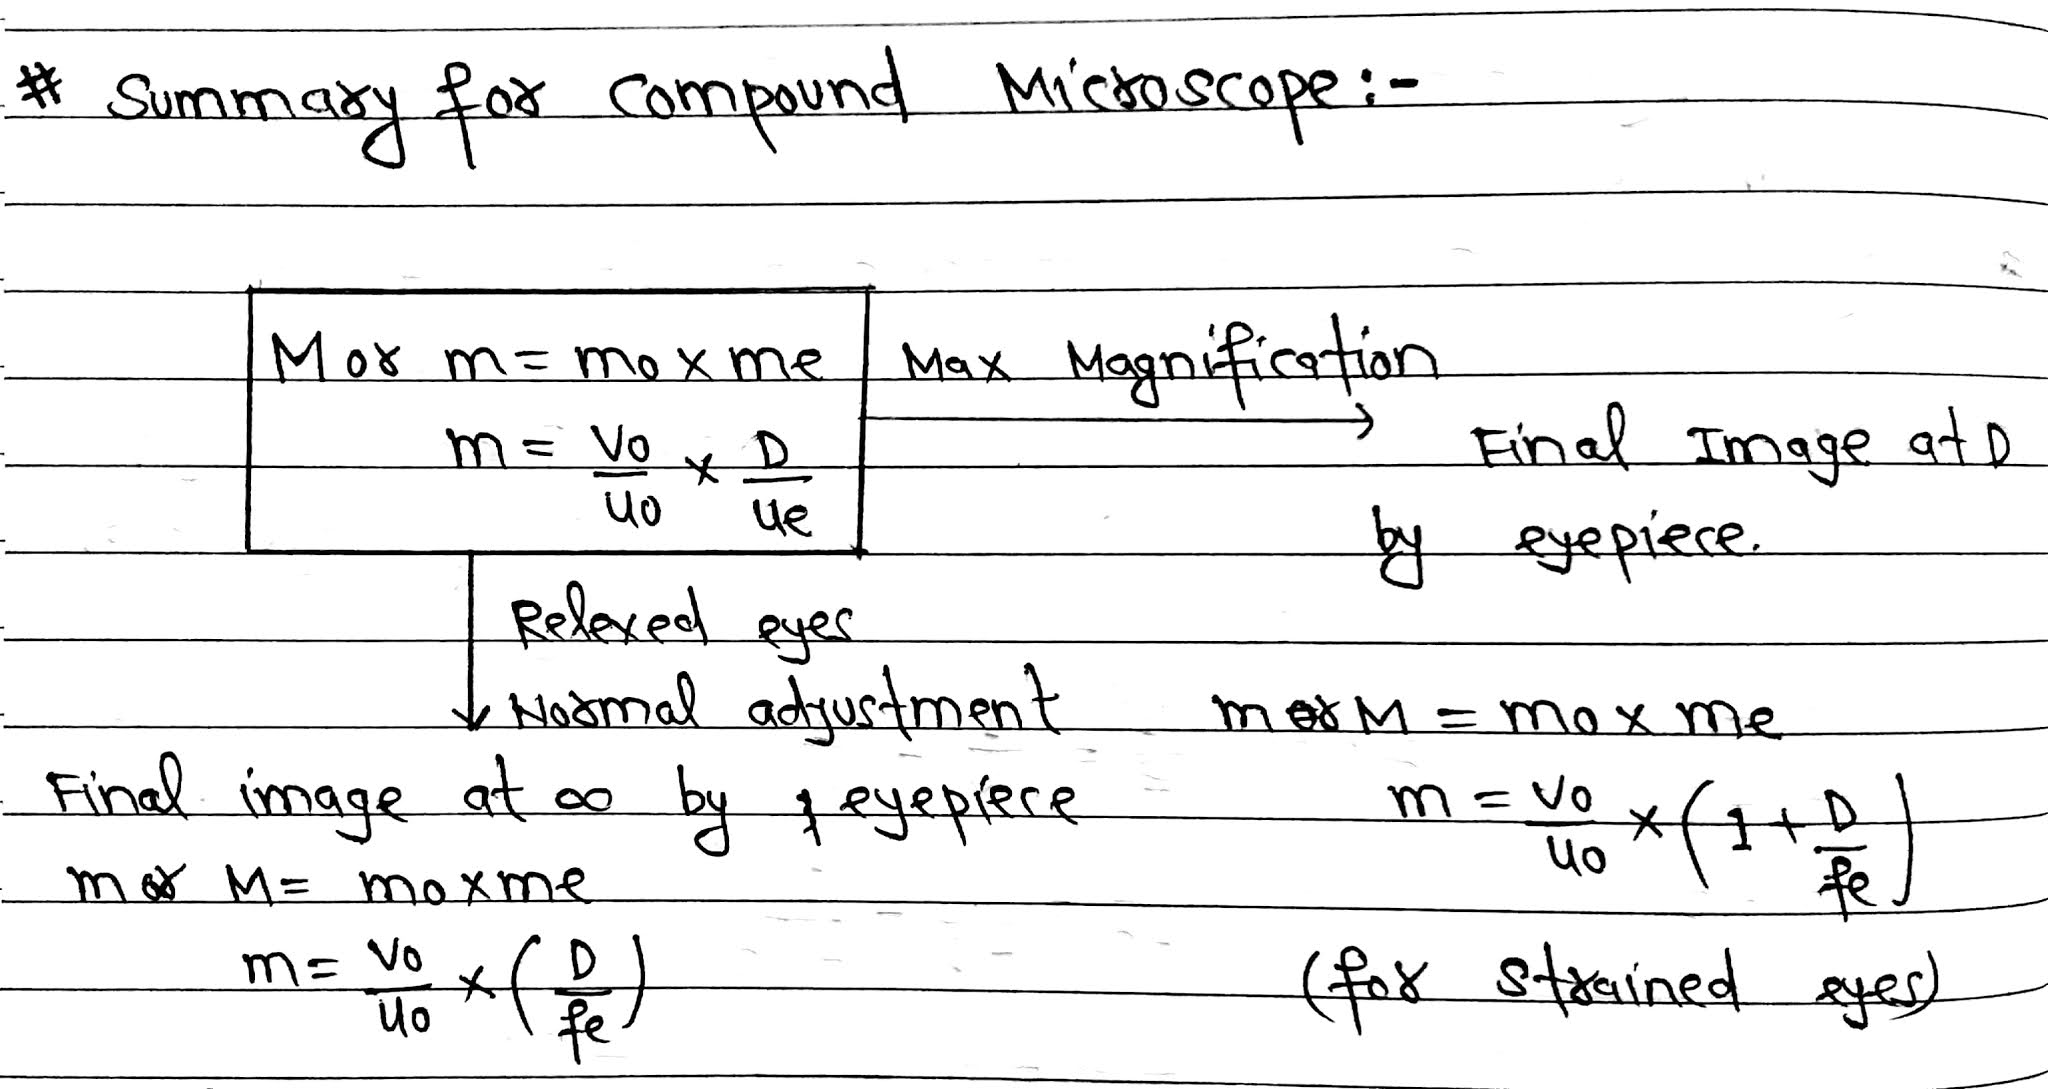 # Summary for compound Microscope:-
M or m = mo x me
m = Vo/uo x D/ue
Max Magnification
Final Image at D
by eyepiece.
Relexed eyes
Normal adjustment
Final image at ∞ by eyepiece
m or M = mo x me
m = Vo/uo x (D/fe)
m or M = mo x me
m = Vo/uo x (1 + D/fe)
(for strained eyes)